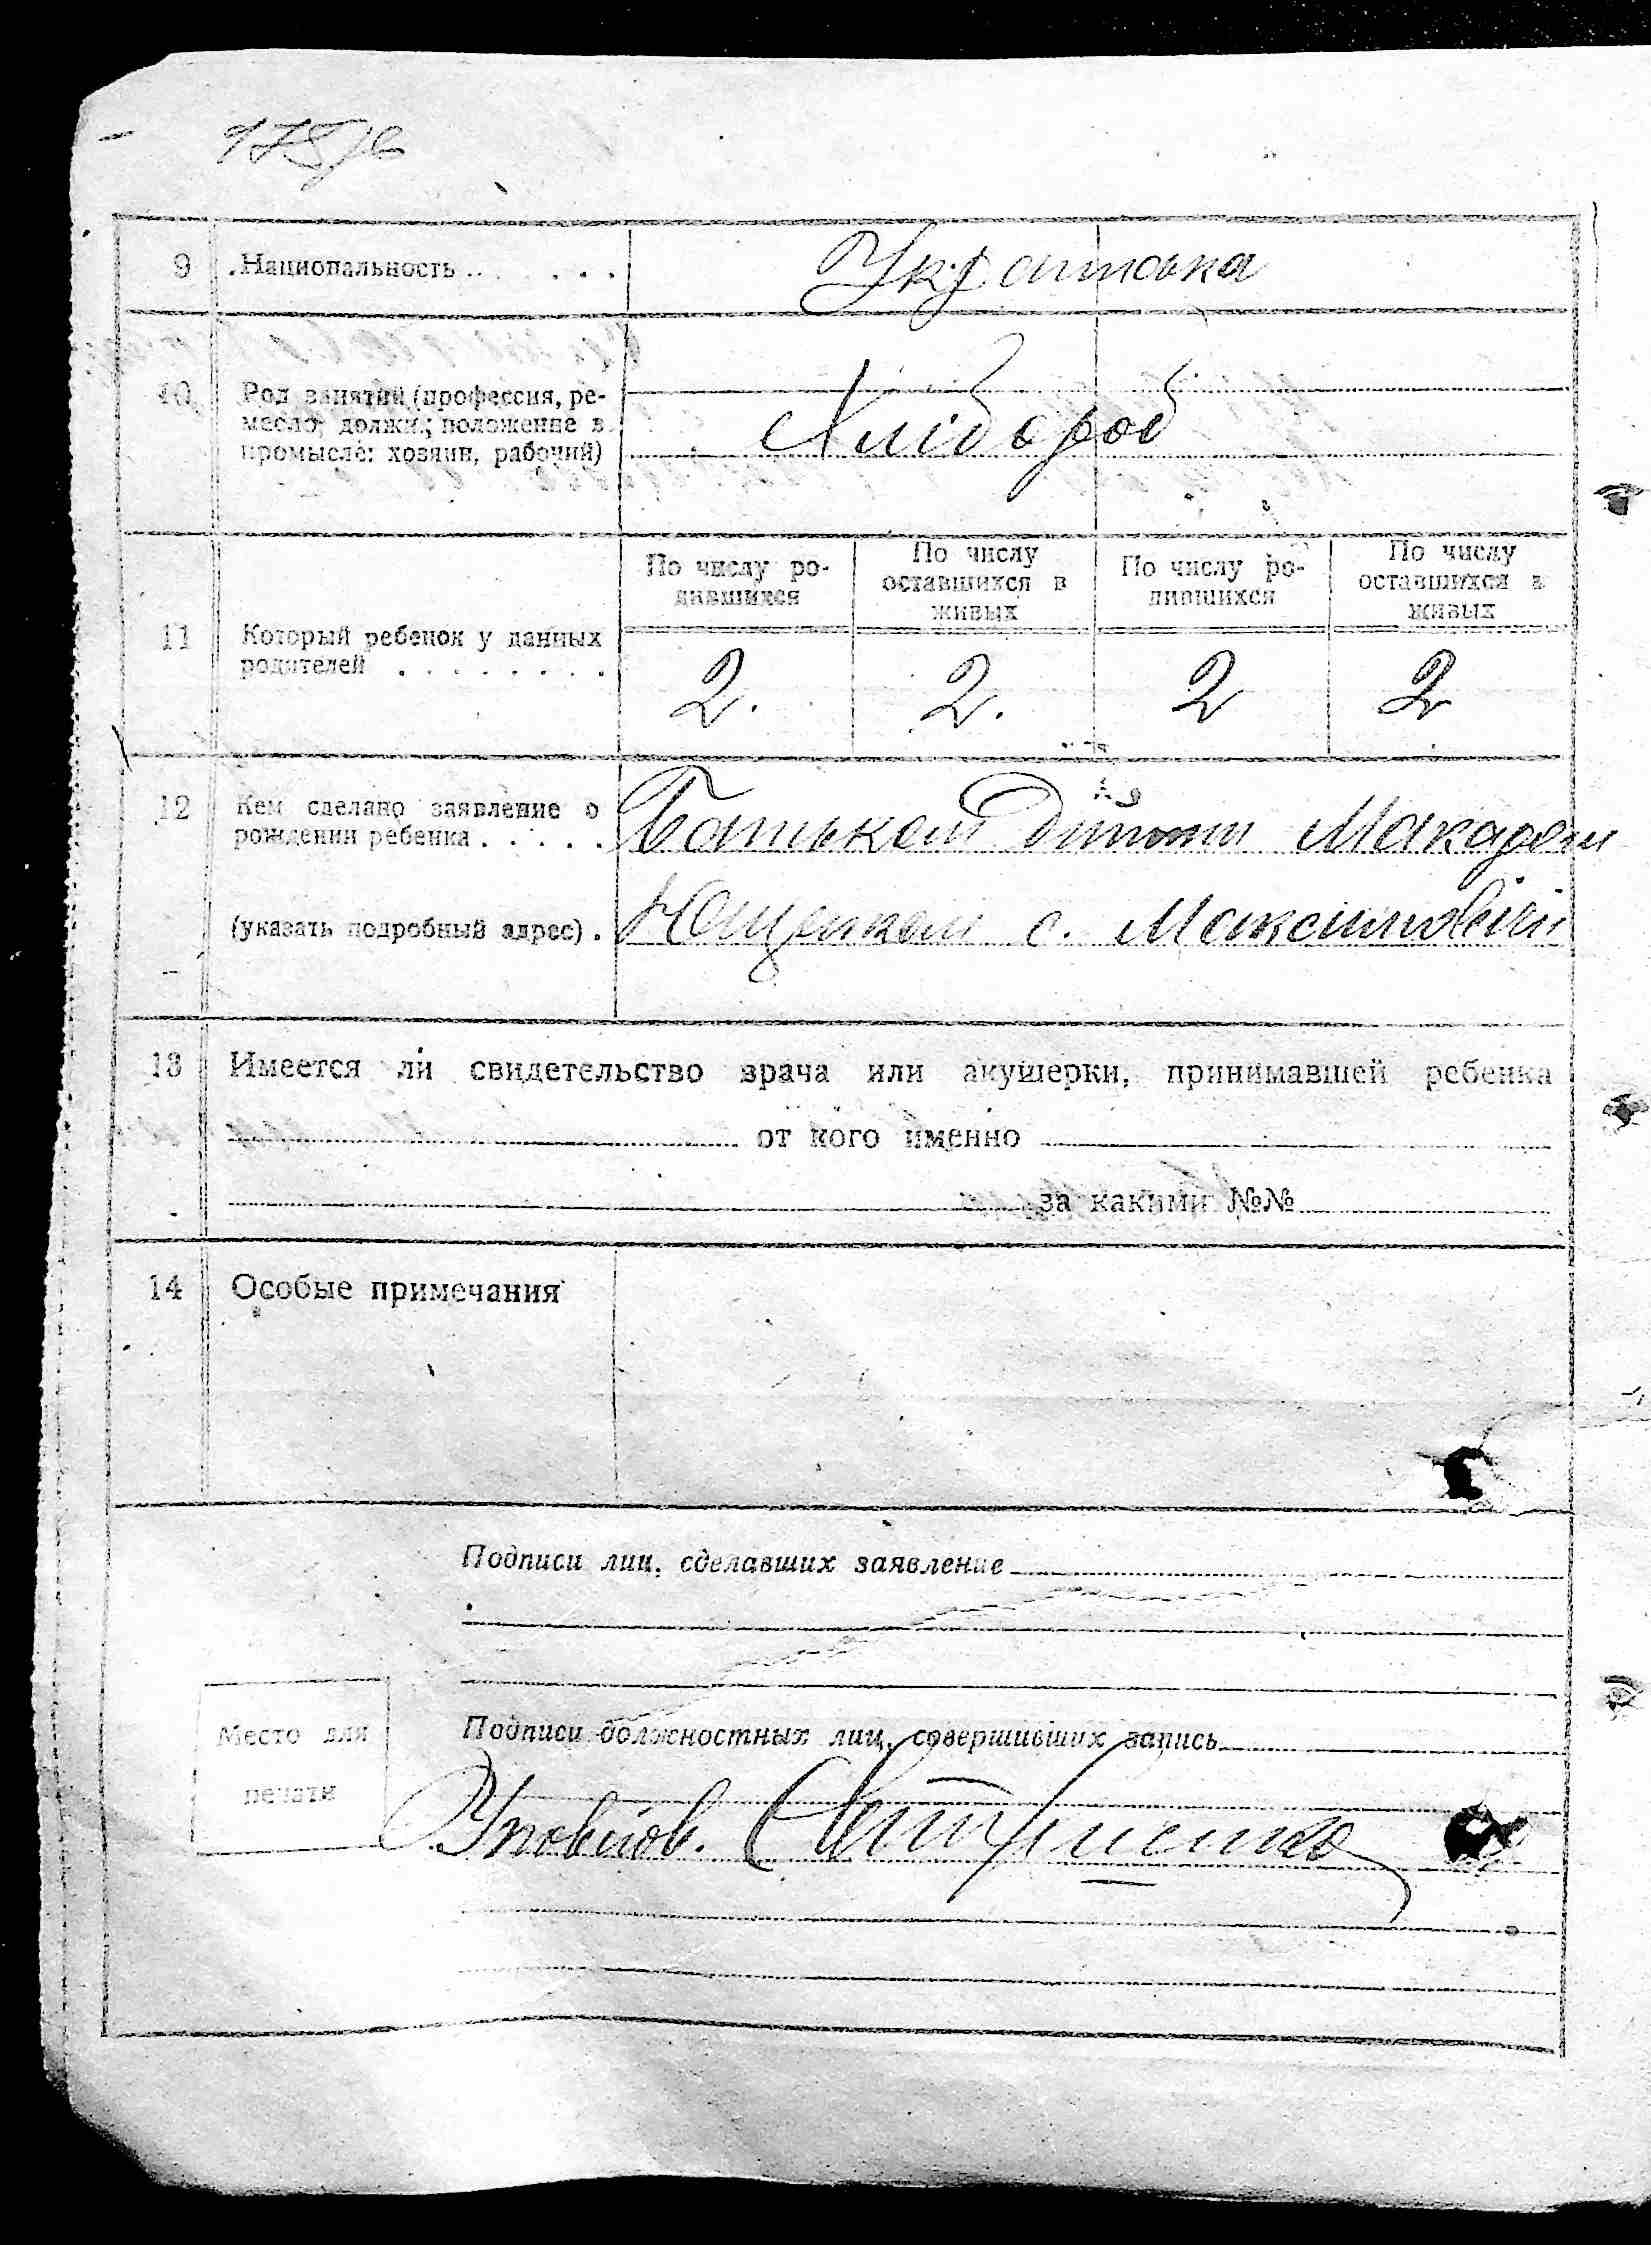 9 Национальность
Українська
10 Род занятий (профессия, ре-
месло, должн.; положение в
промысле: хозяин, рабочий)
Хлібороб
11 Который ребенок у данных
родителей
По числу ро-
дившихся
По числу
оставшихся в
живых
По числу ро-
дившихся
По числу
оставшихся в
живых
2. 2. 2 2
12 Кем сделано заявление о
рождении ребенка
Батьком Макаром
(указать подробный адрес).
Ющенком с.
13 Имеется ли свидетельство врача или акушерки, принимавшей ребенка
от кого именно
за какими №№
14 Особые примечания
Подписи лиц, сделавших заявление
Подписи должностных лиц, совершивших запись
Место для
печати